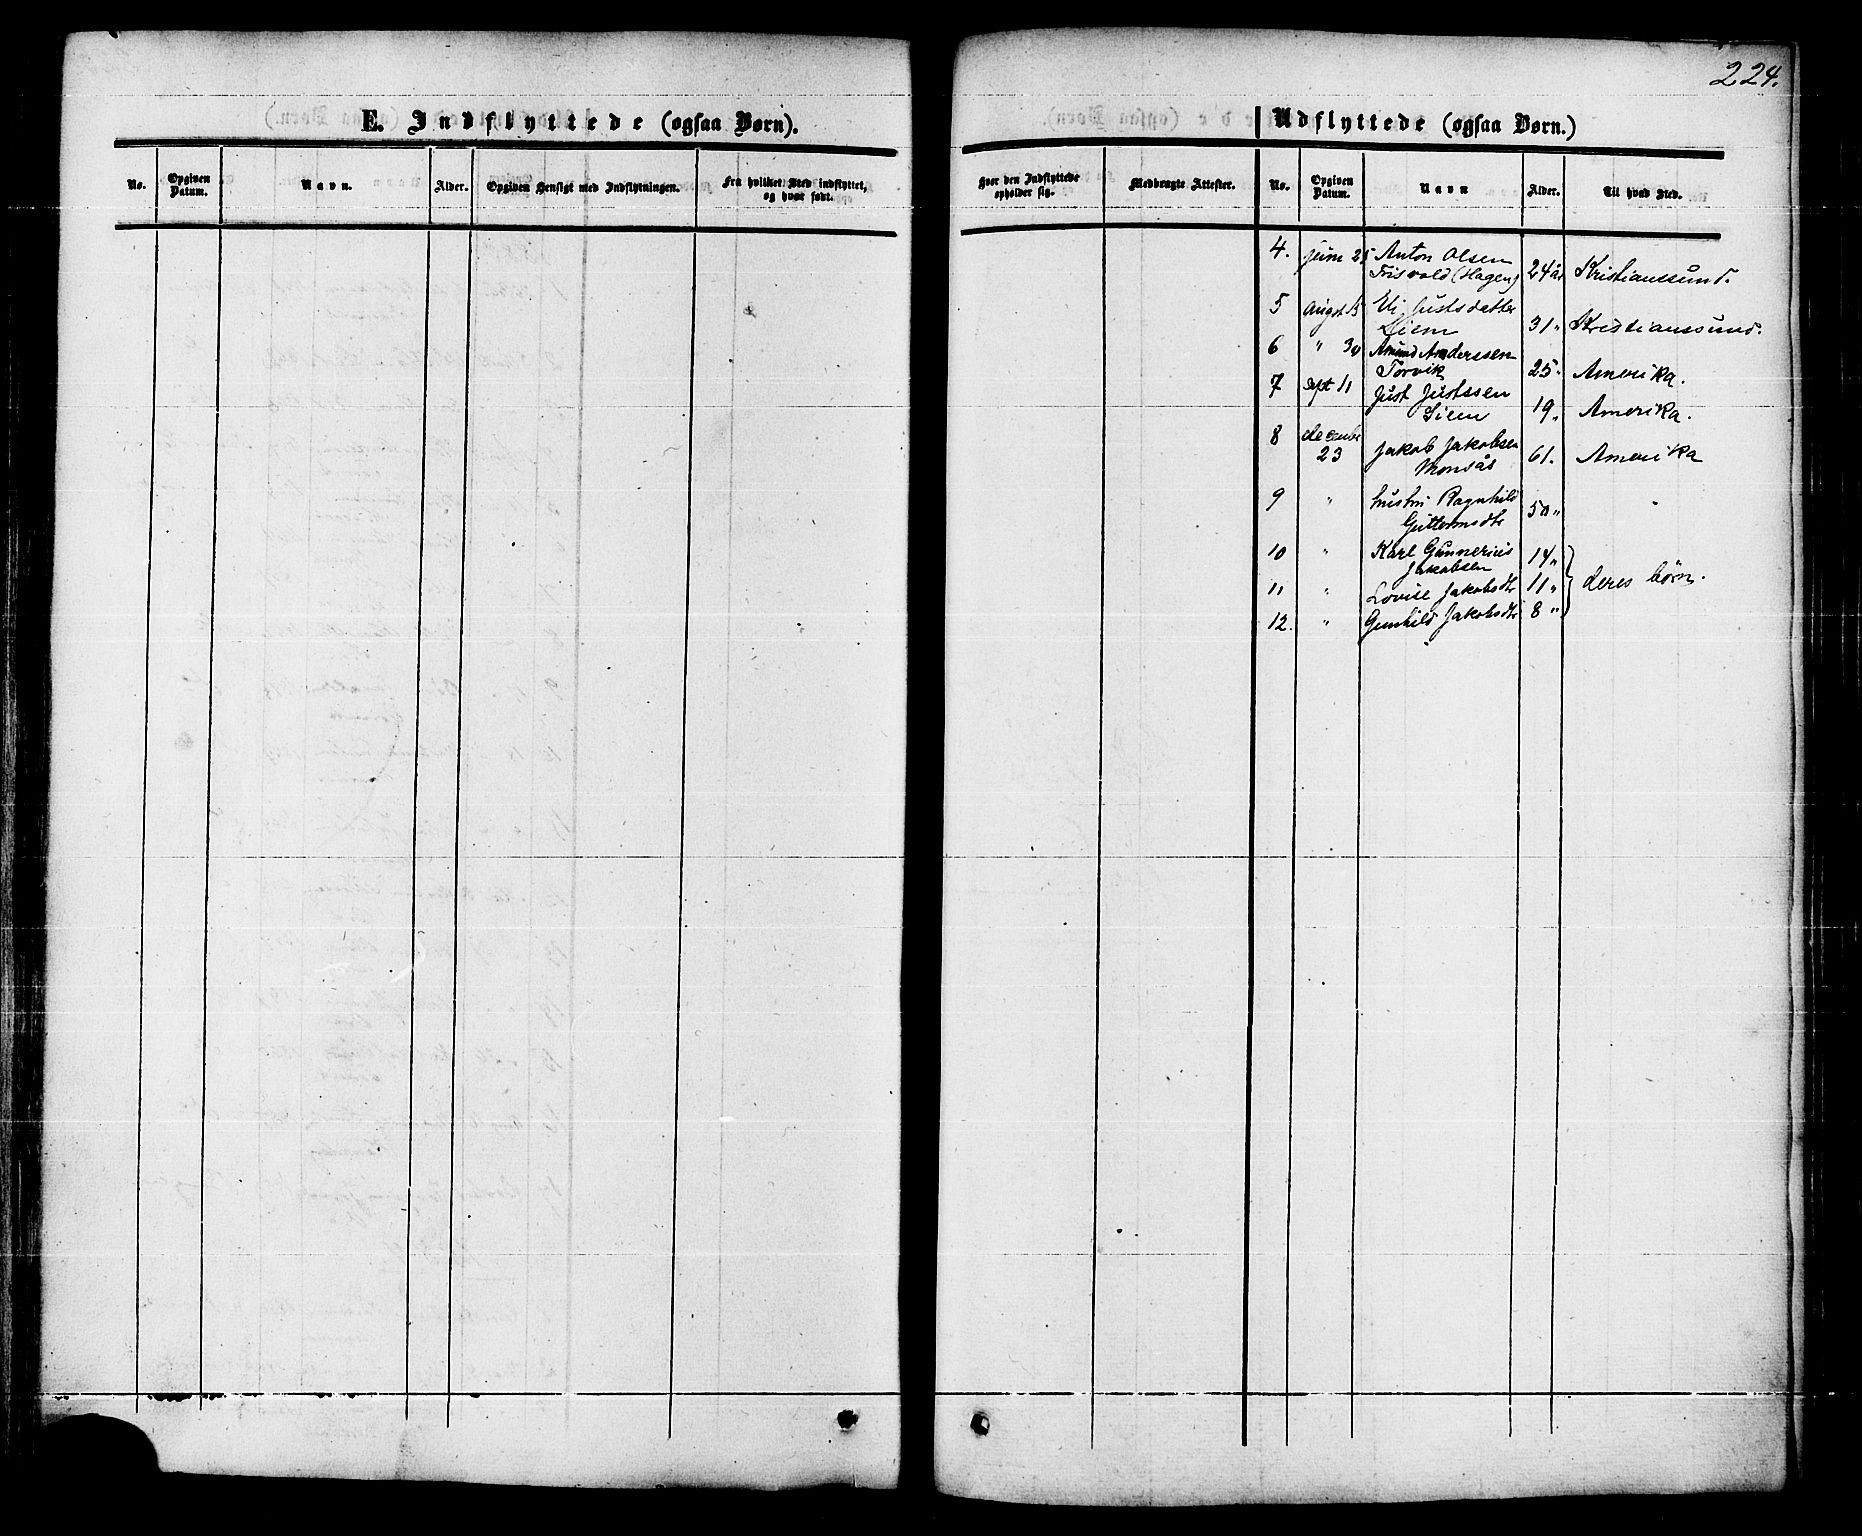 224.
E. Indflyttede (ogsaa Børn).
No.
Opgiven Datum.
Navn.
Alder.
Opgiven Hensigt med Indflytningen.
Fra hvilket Sted indflyttet, og hvor født.
Udflyttede (ogsaa Børn.)
Hvor den Indflyttede opholder sig.
Medbragte Attester.
No.
Opgiven Datum.
Navn
Alder.
Til hvad Sted.
4. Juni 25 Anton Olsen
Trisvold (Hagen) 24 år Kristianssund.
5 August Eli Justsdatter
Liem 31 " Kristianssund.
6 " 30 Amund Anderssen
Torvik 25 " Amerika.
7 Sept 11 Just Justssen
Liem 19 " Amerika.
8 December 23 Jakob Jakobsen
Monsås 61. Amerika
9 " hustru Ragnhild
Guttormsdtr 50 " "
10 " Karl Gunnerius
Jakobsen 14 "
11 " Lovise Jakobsdtr 11 " deres børn.
12. " Gunhild Jakobsdtr 8 "